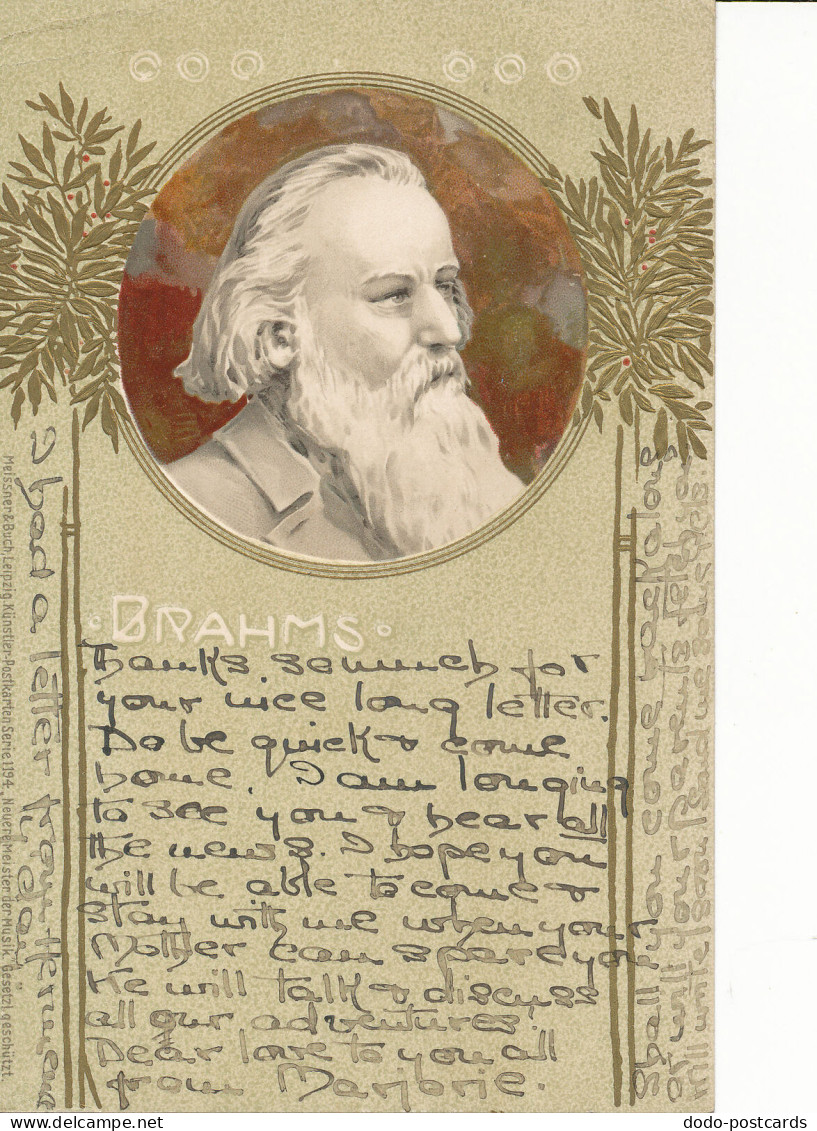 BRAHMS
Thanks so much for
your nice long letter.
Do be quick & come
home. I am longing
to see you & hear all
the news. I hope you
will be able to come &
stay with me when your
Mother can spare you
We will talk & discuss
all our adventures.
Dear love to you all
from Marjorie.
Shall you come back alone
or will your Parents fetch you
will write soon
I had a letter from Hermione
Meissner & Buch, Leipzig. Künstler-Postkarten Serie 1194. „Neuere Meister der Musik“ Gesetzl. geschützt.
dodo-postcards